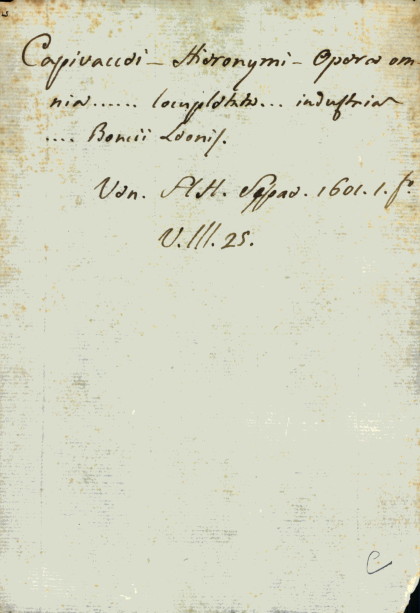 Capivaccei - Hieronymi - Opera om
nia ...... locupletata ... industria
.... Boncii Leonis.
Ven. Ap. H. Sessae. 1601. 1. fo.
V. III. 25.
C